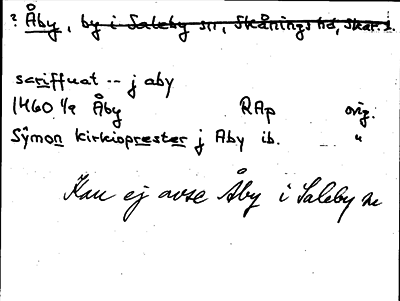 ? Åby, by i Saleby sn, Skånings hd, Skar. l.
scriffuat -- j aby
1460 1/9 Åby RAp orig.
Symon kirkioprester j Aby ib. "
Kan ej avse Åby i Saleby sn